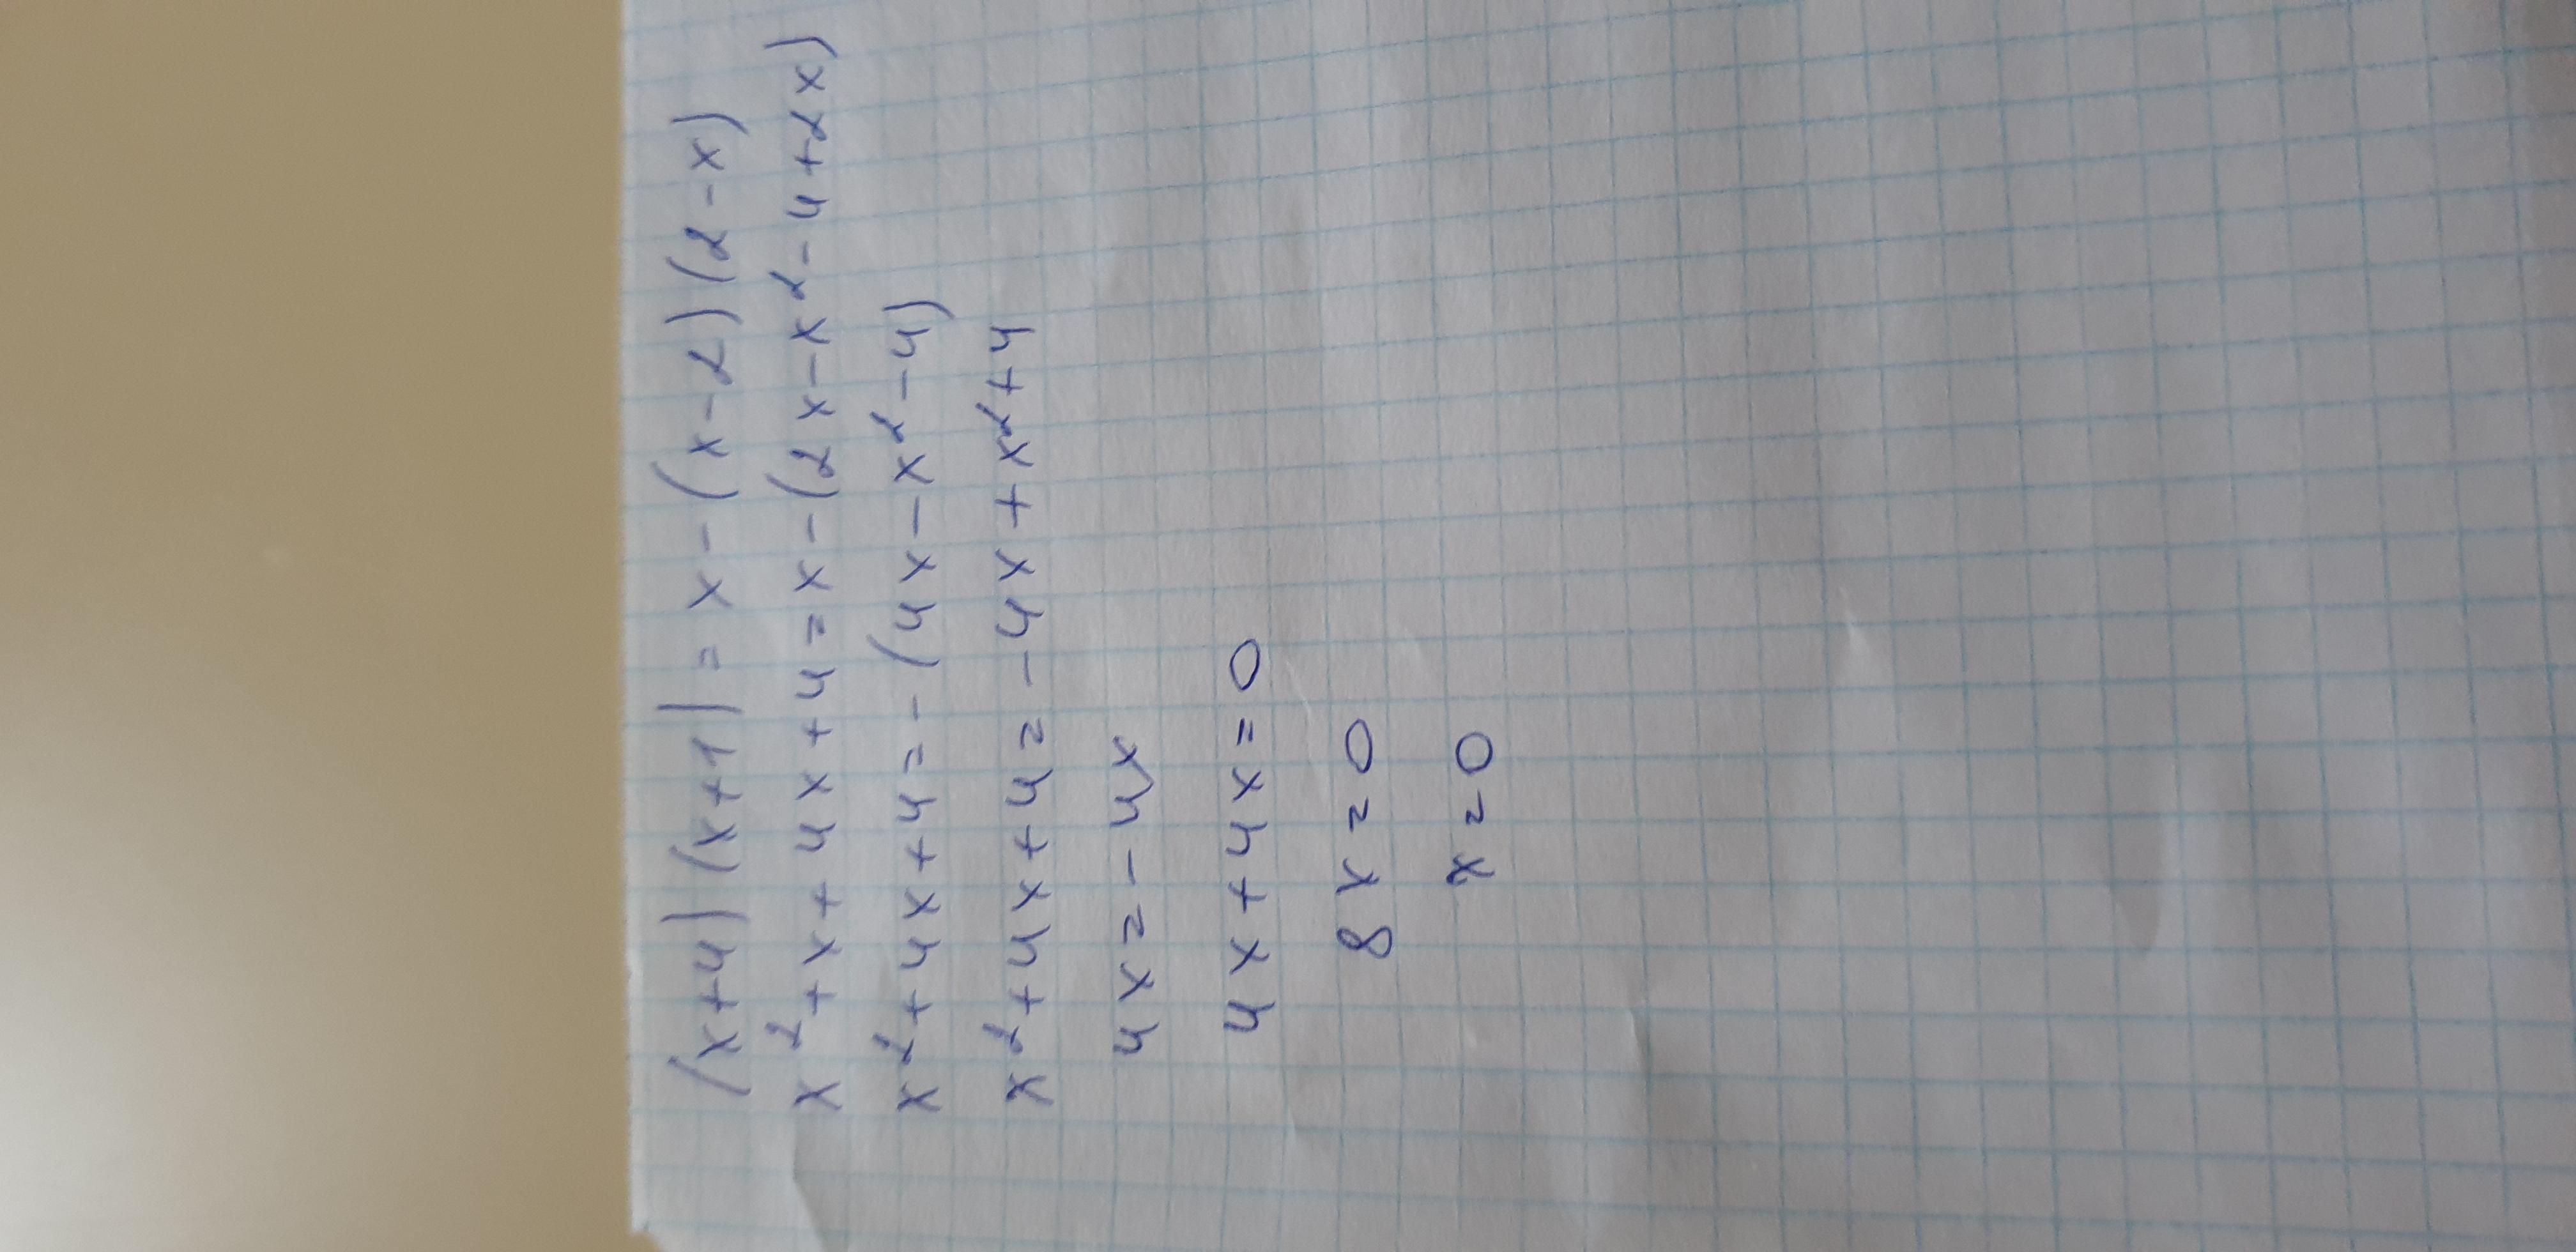 (x+4)(x+1)=x-(x-2)(2-x)
x²+x+4x+4=x-(2x-x²-4+2x)
x²+4x+4=-(4x-x²-4)
x²+4x+4=-4x+x²+4
4x=-4x
4x+4x=0
8x=0
x=0